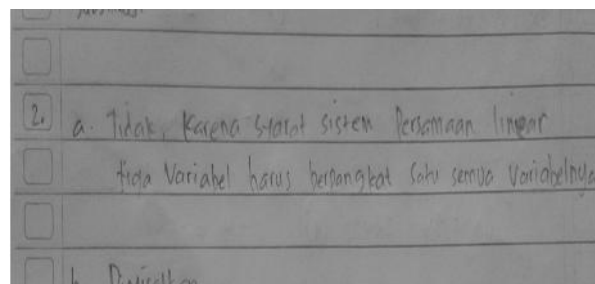 2. a. Tidak, Karena syarat sistem Persamaan linear
tiga Variabel harus berpangkat satu semua variabelnya
b. Dimisalkan